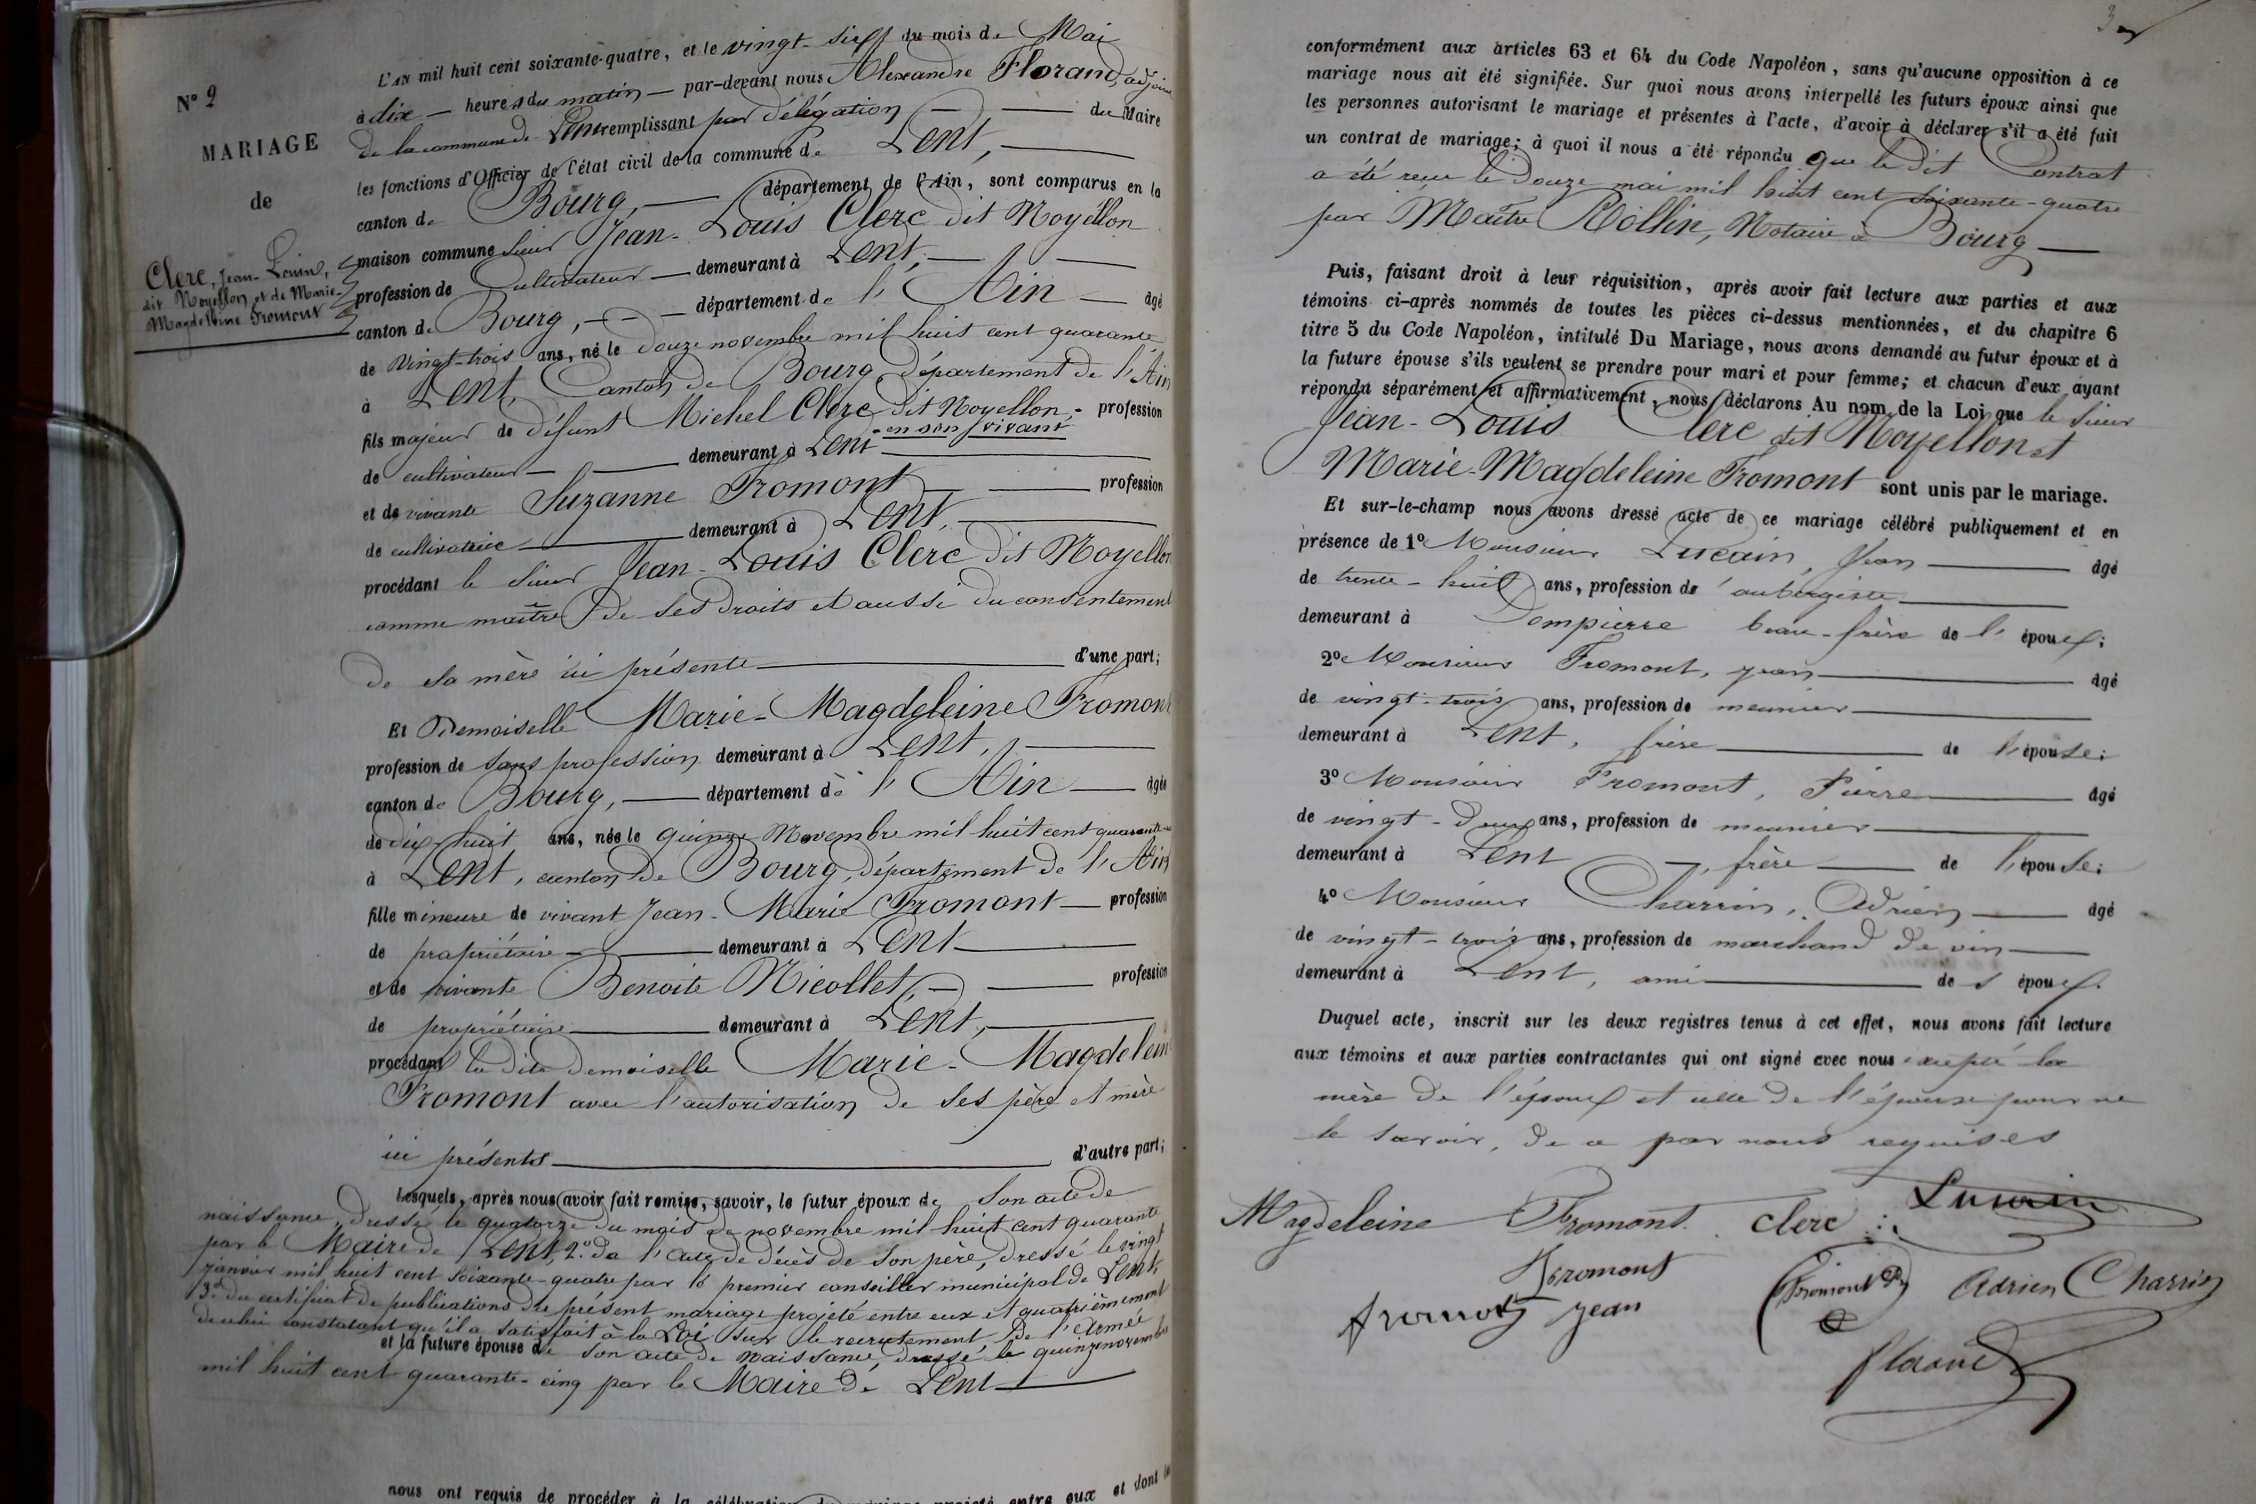 N° 2
MARIAGE
de
Clerc, Jean-Louis,
dit Noyellon et de Marie-
Magdeleine Fromont
L'AN mil huit cent soixante-quatre, et le vingt-six du mois de Mai
à dix — heures du matin — par-devant nous Alexandre Florand, adjoint
de la commune de Lent remplissant par délégation — — du Maire
les fonctions d'Officier de l'état civil de la commune de Lent, —
canton de Bourg, — département de l'Ain, sont comparus en la
maison commune sieur Jean-Louis Clerc dit Noyellon
profession de Cultivateur — demeurant à Lent, — —
canton de Bourg, - - - département de l'Ain — âgé
de vingt-trois ans, né le douze novembre mil huit cent quarante
à Lent, Canton de Bourg département de l'Ain
fils majeur de défunt Michel Clerc dit Noyellon, - profession
de cultivateur — — demeurant à Lent - en son vivant
et de vivante Suzanne Fromont — — profession
de cultivatrice — demeurant à Lent, —
procédant le sieur Jean-Louis Clerc dit Noyellon
comme maître de ses droits et aussi du consentement
de sa mère ici présente — d'une part;
Et Demoiselle Marie-Magdeleine Fromont
profession de sans profession demeurant à Lent, —
canton de Bourg, — département de l'Ain — âgée
de dix-huit ans, née le quinze Novembre mil huit cent quarante-
à Lent, canton de Bourg, département de l'Ain
fille mineure de vivant Jean-Marie Fromont — profession
de propriétaire — demeurant à Lent —
et de vivante Benoite Nicollet, — — profession
de propriétaire — demeurant à Lent, —
procédant la dite demoiselle Marie-Magdelein
Fromont avec l'autorisation de ses père et mère
ici présents — d'autre part;
Lesquels, après nous avoir fait remise, savoir, le futur époux de son acte de
naissance, dressé le quatorze du mois de novembre mil huit cent quarante
par le Maire de Lent, 2° de l'acte de décès de son père, dressé le vingt
janvier mil huit cent soixante-quatre par le premier conseiller municipal de Lent,
3° du certificat de publications du présent mariage projeté entre eux et quatrièmement
de celui constatant qu'il a satisfait à la Loi sur le recrutement de l'armée
et la future épouse de son acte de naissance, dressé le quinze novembre
mil huit cent quarante-cinq par le Maire de Lent —
nous ont requis de procéder à la célébration du mariage projeté entre eux et dont
3
conformément aux articles 63 et 64 du Code Napoléon, sans qu'aucune opposition à ce
mariage nous ait été signifiée. Sur quoi nous avons interpellé les futurs époux ainsi que
les personnes autorisant le mariage et présentes à l'acte, d'avoir à déclarer s'il a été fait
un contrat de mariage; à quoi il nous a été répondu que le dit Contrat
a été reçu le douze mai mil huit cent soixante-quatre
par Maître Rollin, Notaire à Bourg —
Puis, faisant droit à leur réquisition, après avoir fait lecture aux parties et aux
témoins ci-après nommés de toutes les pièces ci-dessus mentionnées, et du chapitre 6
titre 5 du Code Napoléon, intitulé Du Mariage, nous avons demandé au futur époux et à
la future épouse s'ils veulent se prendre pour mari et pour femme; et chacun d'eux ayant
répondu séparément et affirmativement, nous déclarons Au nom de la Loi que le sieur
Jean-Louis Clerc dit Noyellon et
Marie-Magdeleine Fromont sont unis par le mariage.
Et sur-le-champ nous avons dressé acte de ce mariage célébré publiquement et en
présence de 1° Monsieur Lucain, Jean — âgé
de trente-huit ans, profession de aubergiste —
demeurant à Dompierre beau-frère de l'époux;
2° Monsieur Fromont, jean — âgé
de vingt-trois ans, profession de meunier —
demeurant à Lent, frère — de l'épouse;
3° Monsieur Fromont, Pierre — âgé
de vingt-deux ans, profession de meunier —
demeurant à Lent —, frère — de l'épouse;
4° Monsieur Charrin, Adrien — âgé
de vingt-trois ans, profession de marchand de vin —
demeurant à Lent, ami — de l'époux.
Duquel acte, inscrit sur les deux registres tenus à cet effet, nous avons fait lecture
aux témoins et aux parties contractantes qui ont signé avec nous excepté la
mère de l'époux et celle de l'épouse pour ne
le savoir, de ce par nous requises
Magdeleine Fromont Clerc Lucain
Fromont Fromont Adrien Charrin
fromont jean
florand